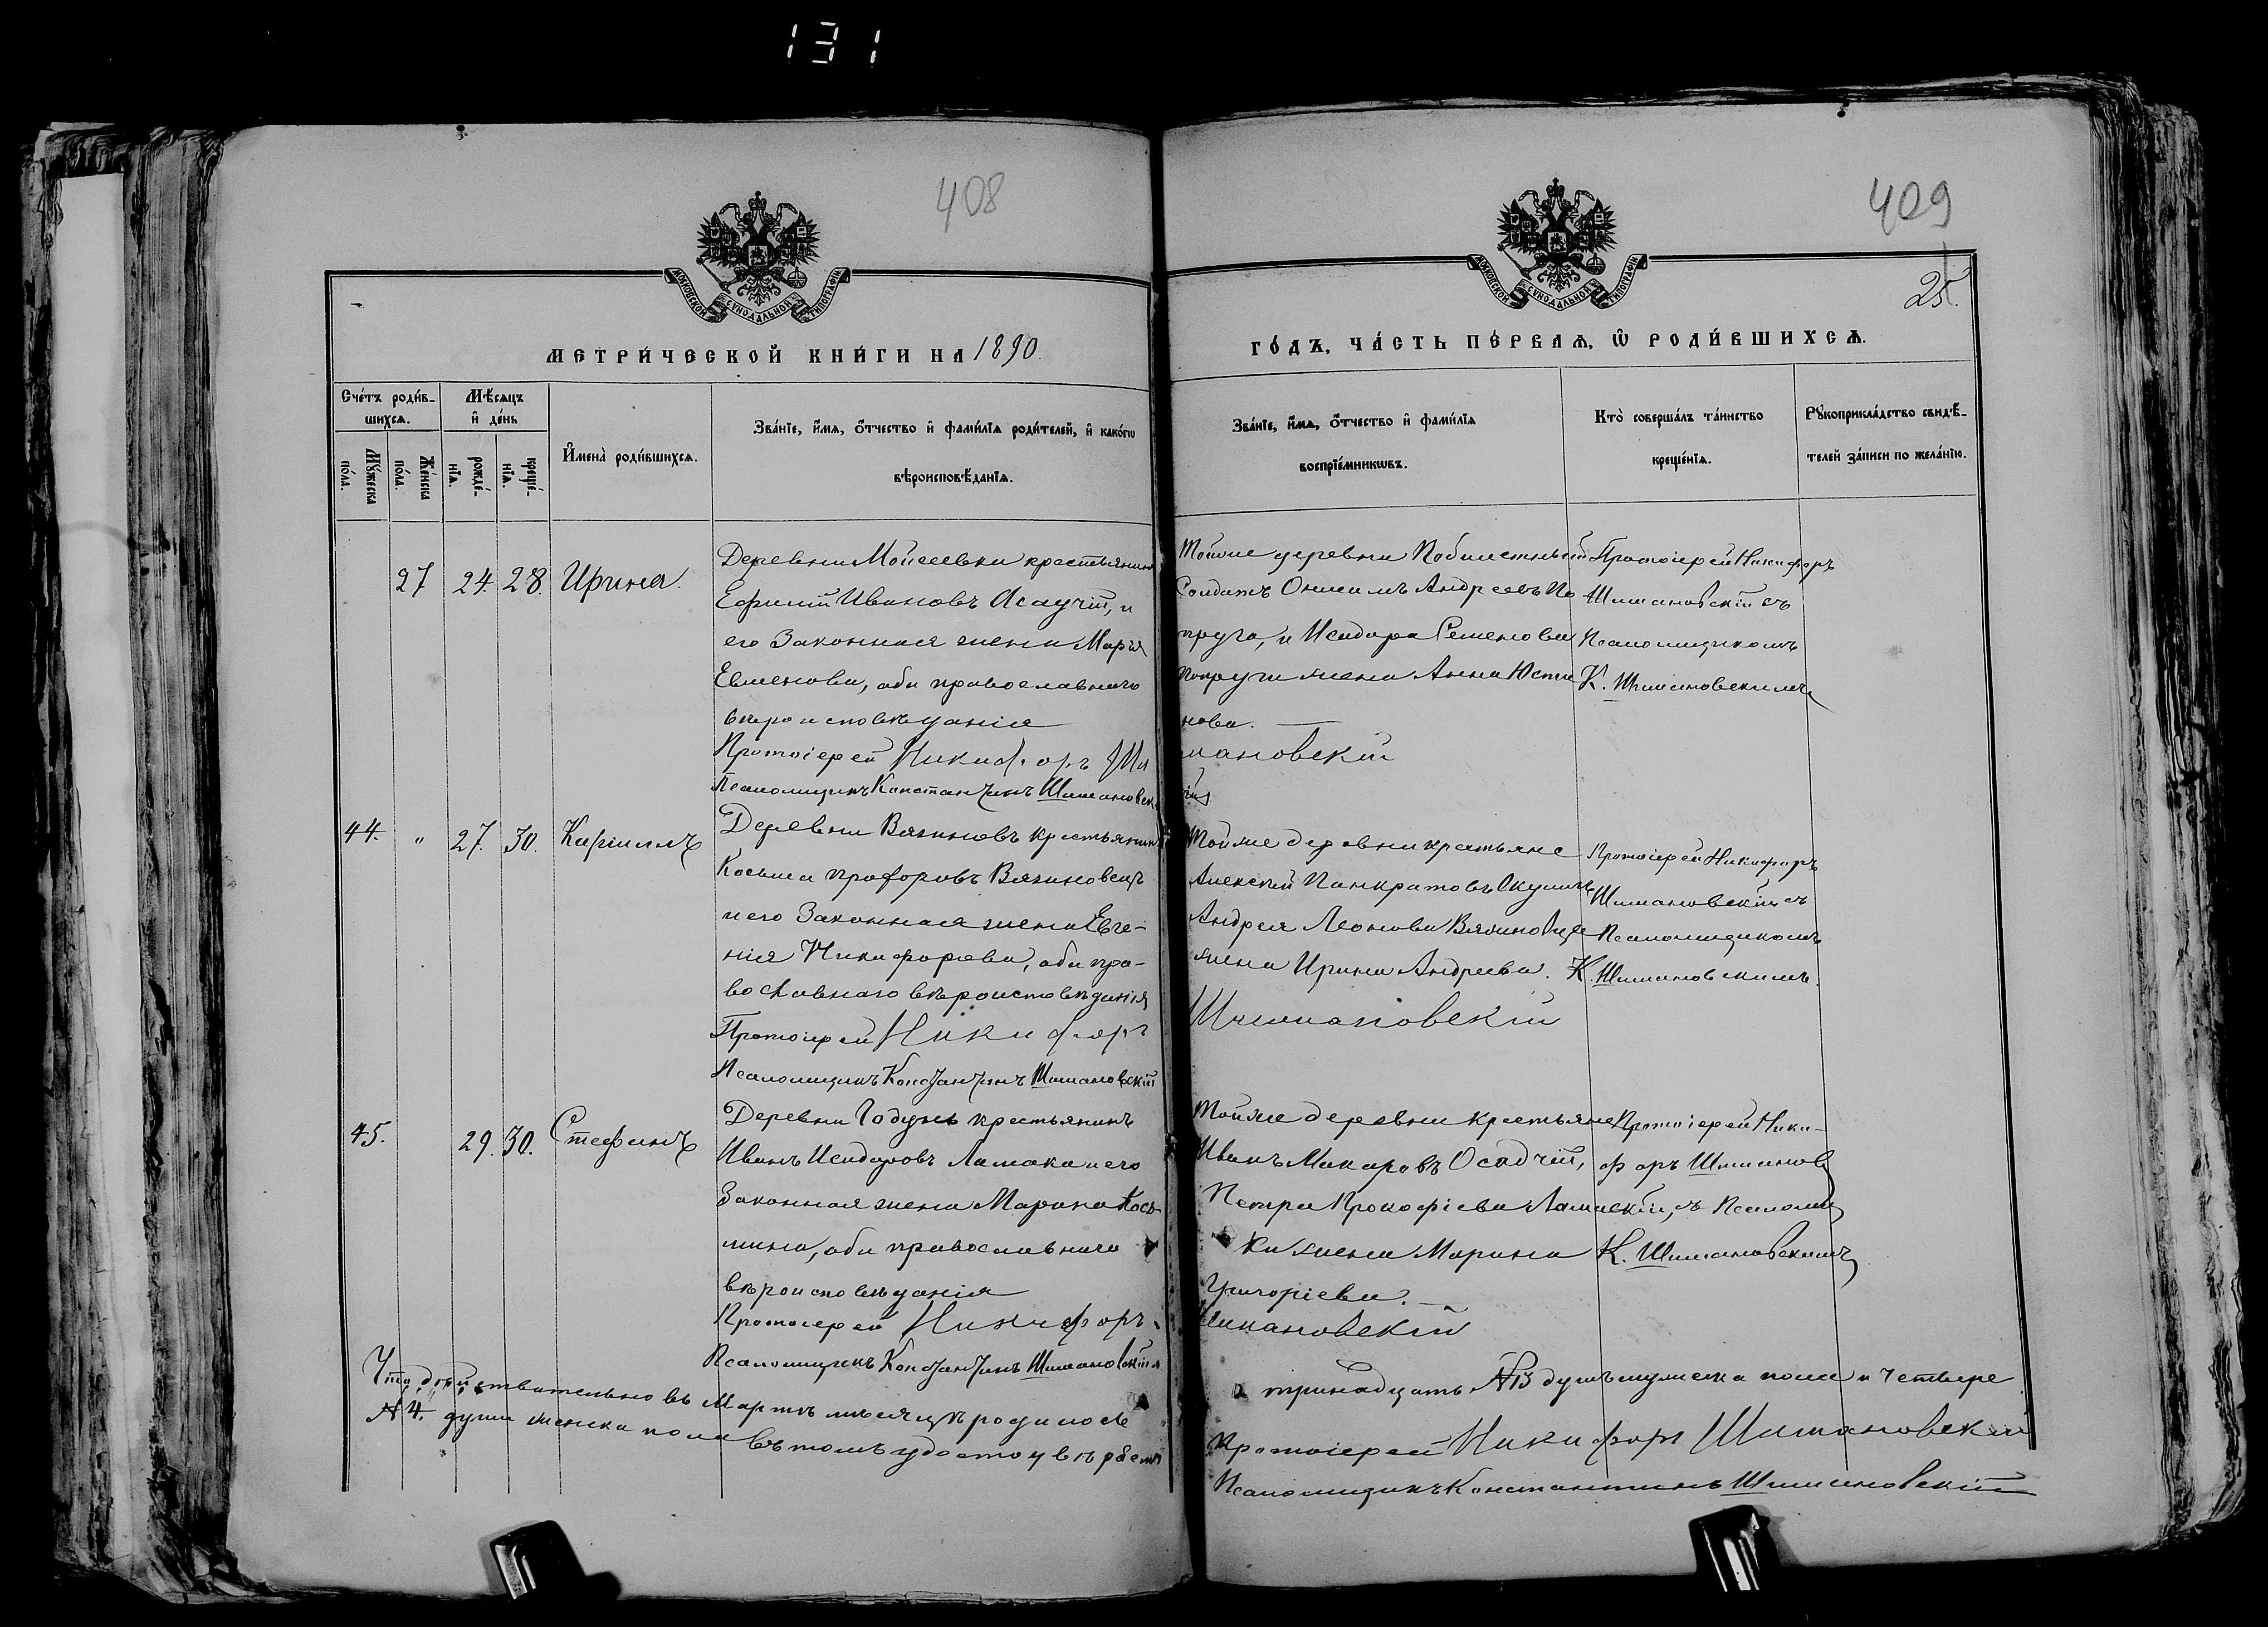 131
408
409
25.
МОСКОВСКОЙ СѴНОДАЛЬНОЙ ТИПОГРАФІИ
МОСКОВСКОЙ СѴНОДАЛЬНОЙ ТИПОГРАФІИ
МЕТРИ́ЧЕСКОЙ КНИ́ГИ НА 1890.
ГО́ДЪ, ЧА́СТЬ ПЕ́РВАѦ, Ѡ РОДИ́ВШИХСѦ.
Сче́тъ роди́в-
шихсѧ.
Мѣ́сяцъ
и҆ де́нь
Мꙋ́жеска
по́ла.
Же́нска
по́ла.
рожде́-
нїѧ.
креще́-
нїѧ.
И҆мена̀ роди́вшихсѧ.
Зва́нїе, и҆́мѧ, ѻ҆́тчество и҆ фами́лїѧ роди́телей, и҆ како́гѡ
вѣроисповѣ́данїѧ.
Зва́нїе, и҆́мѧ, ѻ҆́тчество и҆ фами́лїѧ
воспрїе́мникѡвъ.
Кто̀ соверша́лъ та́инство
креще́нїѧ.
Рꙋкоприкла́дство свидѣ́-
телей за́писи по жела́нїю.
27 24. 28. Ирина.
Деревни Мойсеевки крестьянинъ
Ефимій Ивановъ Асаучій, и
его Законная жена Марія
Евменова, оба православнаго
вѣроисповѣданія
Протоіерей Никифоръ Ши
Псаломщикъ Константинъ Шимановск
Тойже деревни
Солдатъ Онисимъ Андреевъ По
пруга, и Исидора Семенова
Попруги жена Анна Юсти
нова.
мановскій
ій
Протоіерей Никифоръ
Шимановскій съ
Псаломщикомъ
К. Шимановскимъ
44. " 27. 30. Кириллъ
Деревни Вязиновъ крестьянинъ
Косьма Прохоровъ Вязиновецъ
и его Законная жена Евге-
нія Никифорова, оба пра-
вославнаго вѣроисповѣданія
Протоіерей Никифоръ
Псаломщикъ Константинъ Шимановскій
Тойже деревни крестьяне
Алексій Панкратовъ
Андрея Леонова
жена Ирина Андреева.
Шимановскій
Протоіерей Никифоръ
Шимановскій съ
Псаломщикомъ
К. Шимановскимъ.
45. 29. 30. Стефанъ
Деревни Годунъ крестьянинъ
Иванъ Исидоровъ Ламака и его
Законная жена Марина Кось-
мина, оба православнаго
вѣроисповѣданія
Протоіерей Никифоръ
Псаломщикъ Константинъ Шимановскій
Тойже деревни крестьяне
Иванъ Макаровъ Осадчій,
Петра Прокофіева Лама
ки жена Марина
Григоріева.
Шимановскій
Протоіерей Ники-
форъ Шиманов
скій, съ Псаломщ
К. Шимановскимъ
Что дѣйствительно въ Мартѣ мѣсяцѣ родилось
тринадцать №13 душъ мужеска пола и четыре
№4. души женска пола въ томъ удостовѣряемъ
Протоіерей Никифоръ Шимановскій
Псаломщикъ Константинъ Шимановскій